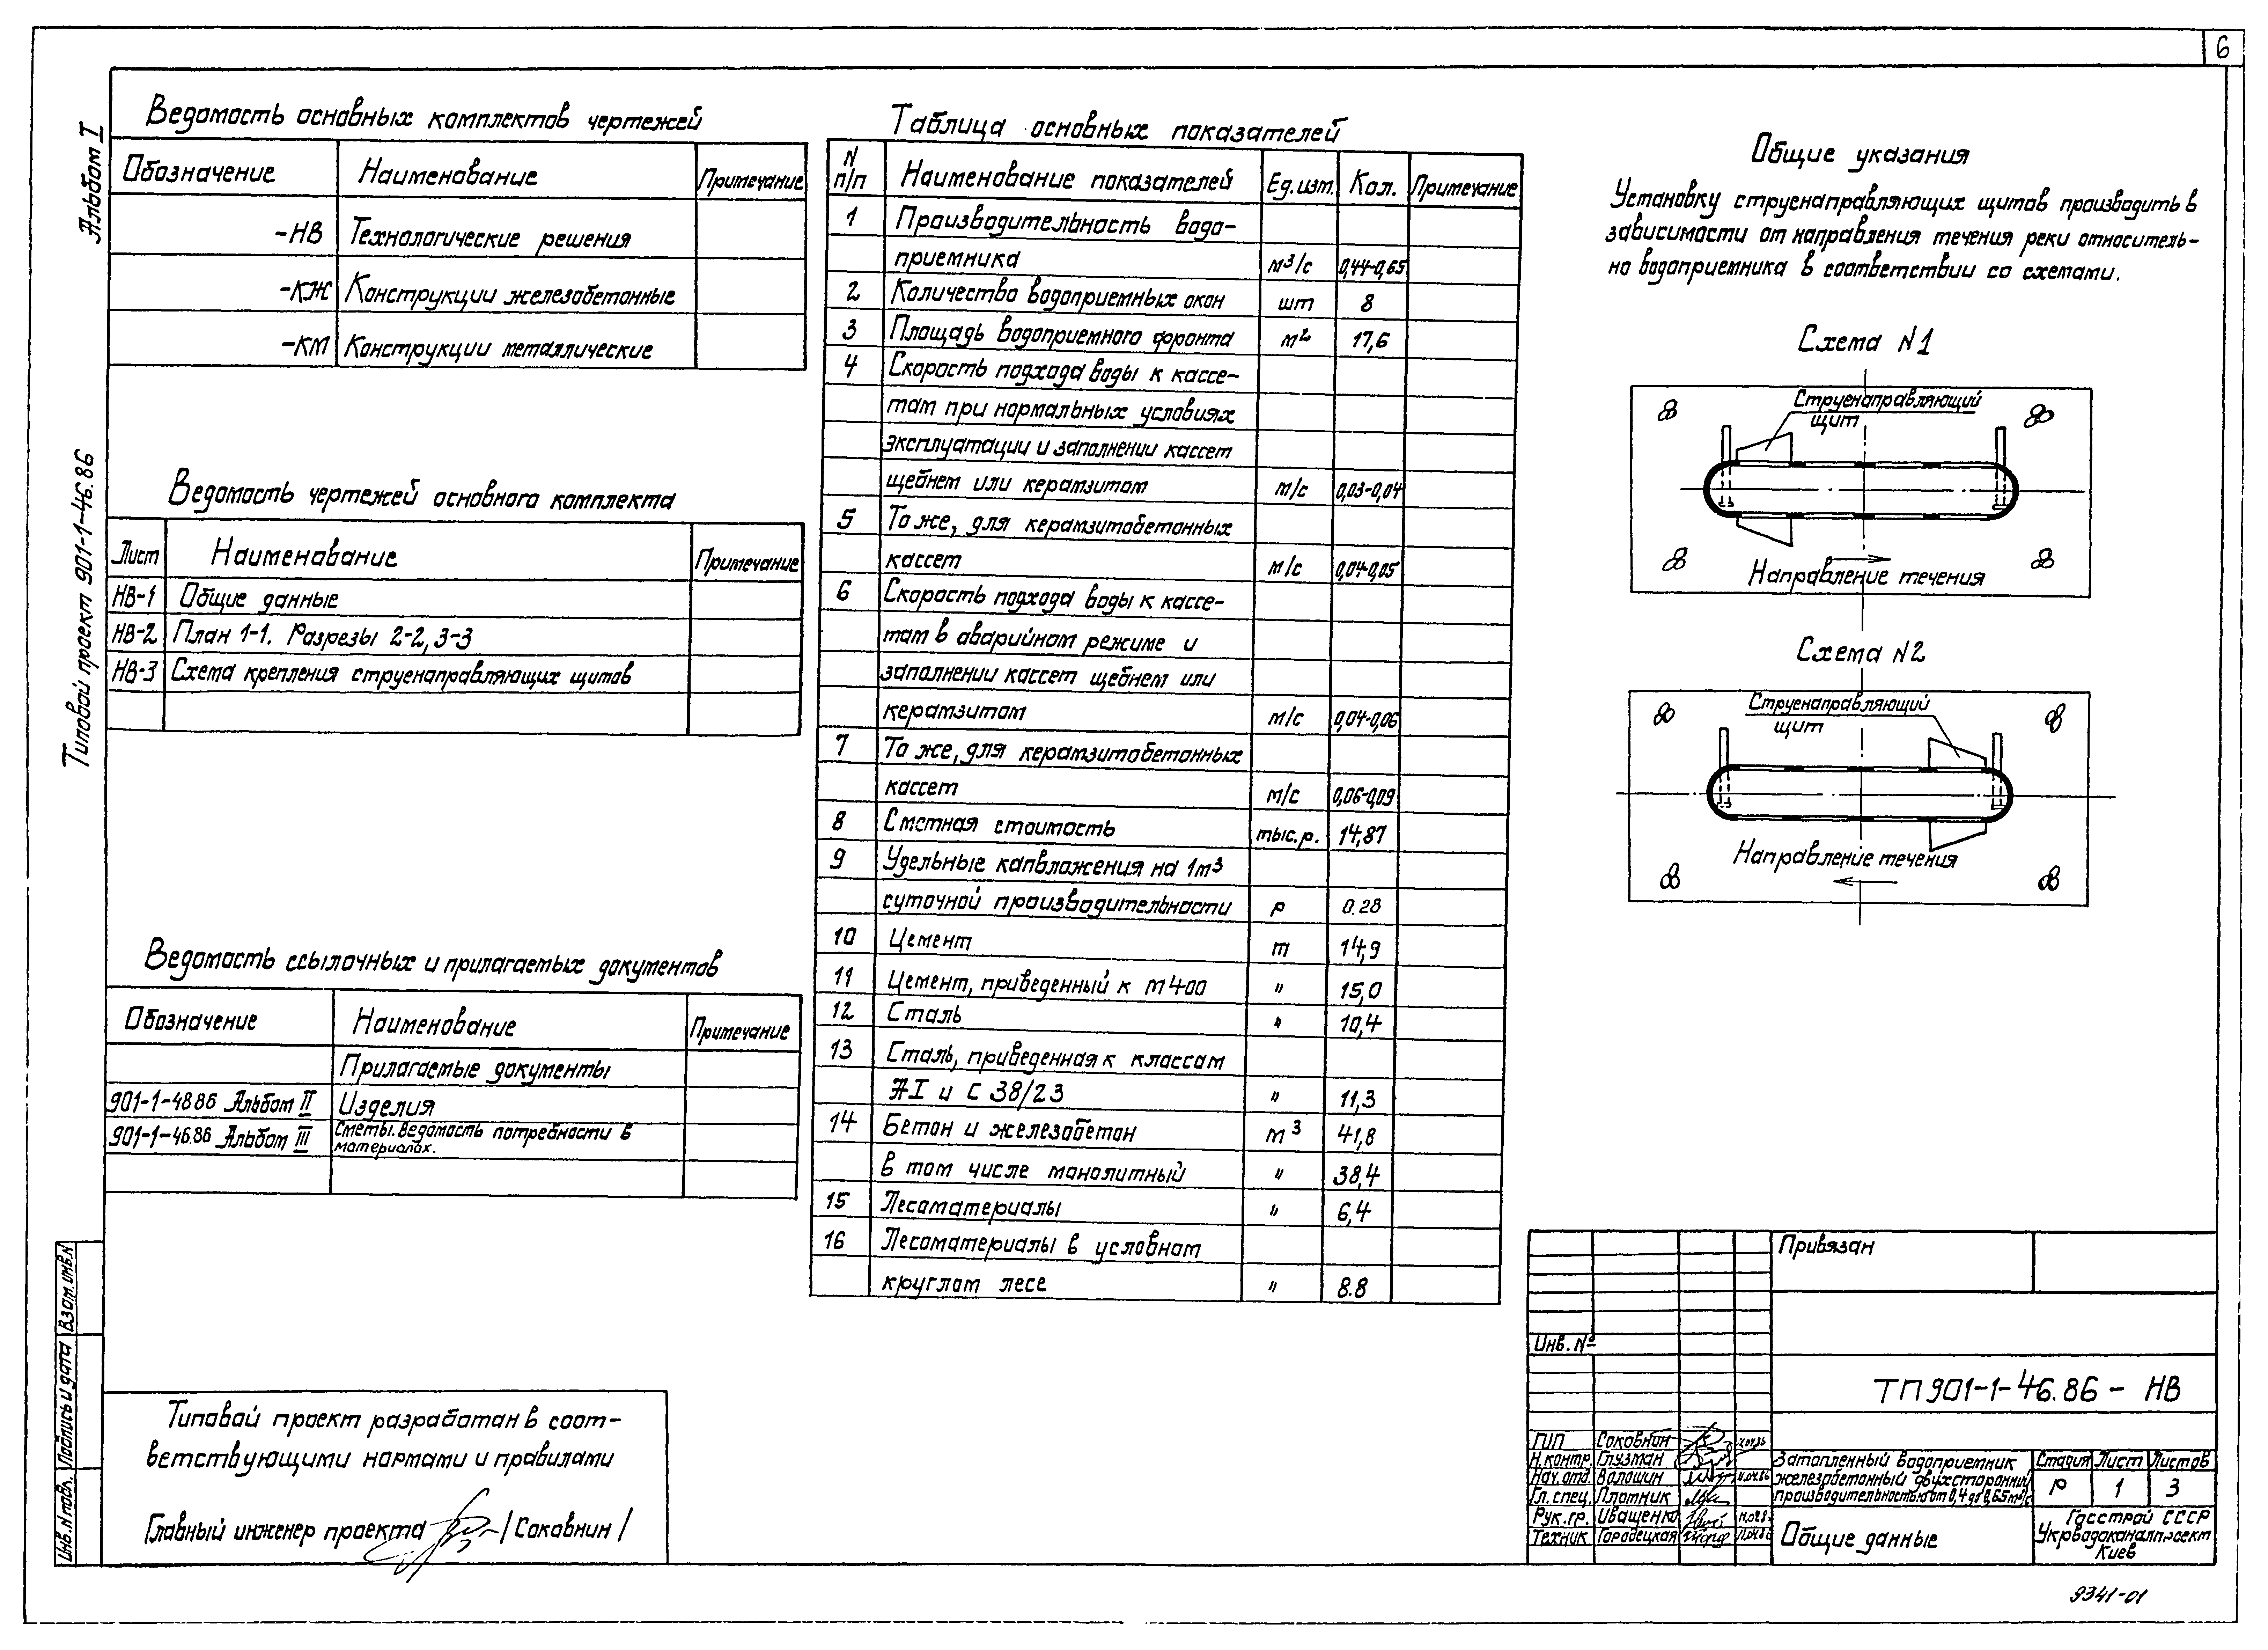 6
Альбом I
Типовой проект 901-1-46.86
Ведомость основных комплектов чертежей
Обозначение Наименование Примечание
-НВ Технологические решения
-КЖ Конструкции железобетонные
-КМ Конструкции металлические
Ведомость чертежей основного комплекта
Лист Наименование Примечание
НВ-1 Общие данные
НВ-2 План 1-1. Разрезы 2-2, 3-3
НВ-3 Схема крепления струенаправляющих щитов
Ведомость ссылочных и прилагаемых документов
Обозначение Наименование Примечание
Прилагаемые документы
901-1-48.86 Альбом II Изделия
901-1-46.86 Альбом III Сметы. Ведомость потребности в
материалах.
Таблица основных показателей
N п/п Наименование показателей Ед.изм. Кол. Примечание
1 Производительность водо-
приемника м3/с 0,44-0,65
2 Количество водоприемных окон шт 8
3 Площадь водоприемного фронта м2 17,6
4 Скорость подхода воды к кассе-
там при нормальных условиях
эксплуатации и заполнении кассет
щебнем или керамзитом м/с 0,03-0,04
5 То же, для керамзитобетонных
кассет м/с 0,04-0,05
6 Скорость подхода воды к кассе-
там в аварийном режиме и
заполнении кассет щебнем или
керамзитом м/с 0,04-0,06
7 То же, для керамзитобетонных
кассет м/с 0,06-0,09
8 Сметная стоимость тыс.р. 14,87
9 Удельные капвложения на 1м3
суточной производительности р 0.28
10 Цемент т 14,9
11 Цемент, приведенный к М400 " 15,0
12 Сталь " 10,4
13 Сталь, приведенная к классам
АI и С 38/23 " 11,3
14 Бетон и железобетон м3 41,8
в том числе монолитный " 38,4
15 Лесоматериалы " 6,4
16 Лесоматериалы в условном
круглом лесе " 8.8
Общие указания
Установку струенаправляющих щитов производить в
зависимости от направления течения реки относитель-
но водоприемника в соответствии со схемами.
Схема N1
Струенаправляющий
щит
Направление течения
Схема N2
Струенаправляющий
щит
Направление течения
Типовой проект разработан в соот-
ветствующими нормами и правилами
Главный инженер проекта /Соковнин/
Инв.N подл. Подпись и дата Взам.инв.N
Привязан
Инв.№
ТП 901-1-46.86 - НВ
ГИП Соковнин
Н.контр. Глузман
Нач.отд. Волошин 11.04.86
Гл.спец. Плотник
Рук.гр. Иващенко
Техник Городецкая
Затопленный водоприемник
железобетонный двухсторонний
производительностью от 0,4 до 0,65м3/с
Стадия Лист Листов
Р 1 3
Общие данные
Госстрой СССР
Укрводоканалпроект
Киев
9341-01